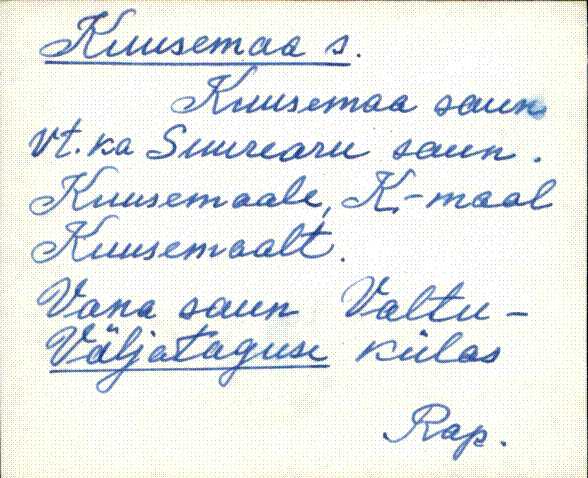 Kuusemaa s.
Kuusemaa saun
vt. ka Suurearu saun.
Kuusemaale, K.-maal
Kuusemaalt.
Vana saun Valtu-
Väljataguse külas
Rap.